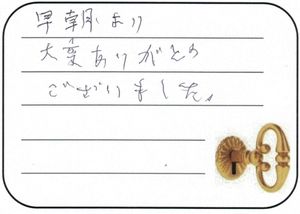 早朝より
大変ありがとう
ございました。